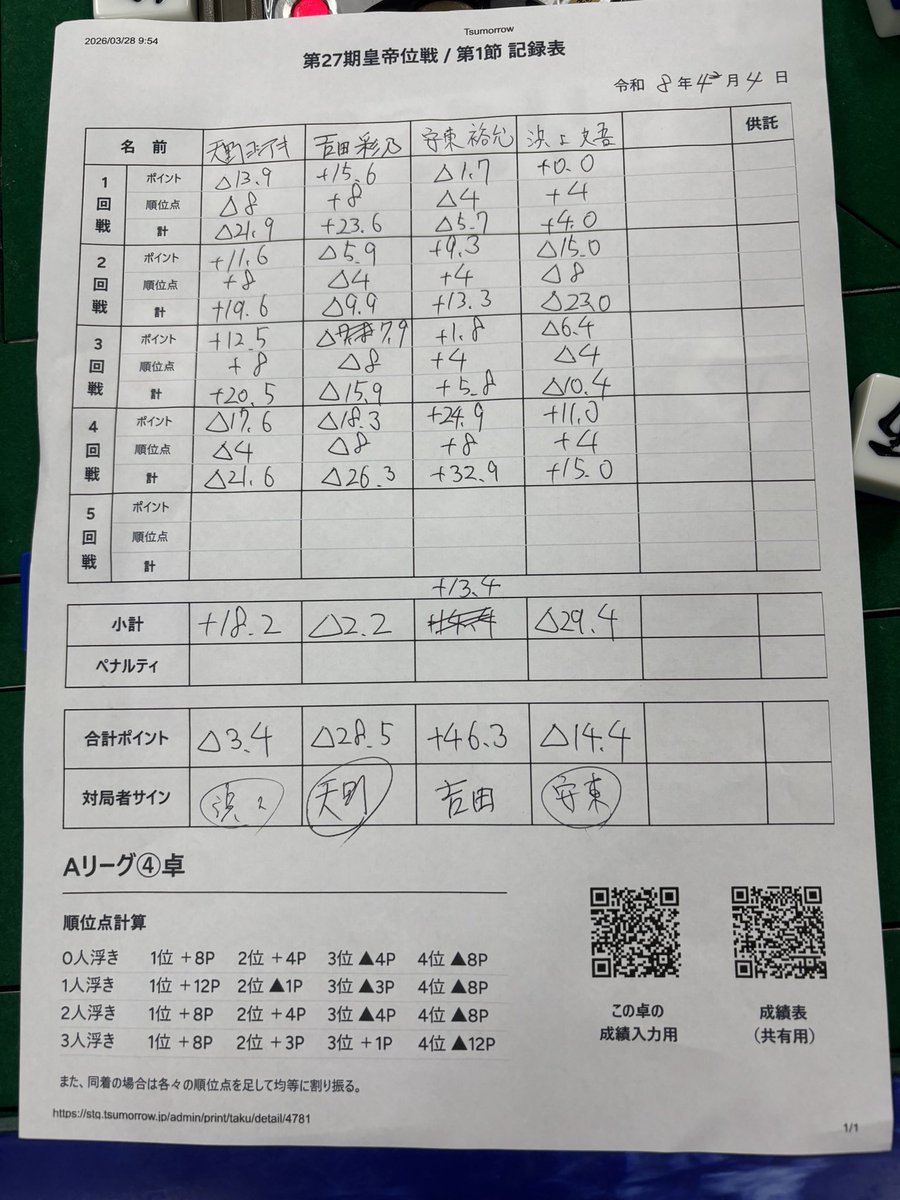 2026/03/28 9:54
Tsumorrow
第27期皇帝位戦 / 第1節 記録表
令和 8 年 4 月 4 日
名 前 吉田 彩乃 安東 裕允 浜上 文吾 供託
1回戦
ポイント △13.9 +15.6 △1.7 +0.0
順位点 △8 +8 △4 +4
計 △21.9 +23.6 △5.7 +4.0
2回戦
ポイント +11.6 △5.9 +9.3 △15.0
順位点 +8 △4 +4 △8
計 +19.6 △9.9 +13.3 △23.0
3回戦
ポイント +12.5 △7.9 +1.8 △6.4
順位点 +8 △8 +4 △4
計 +20.5 △15.9 +5.8 △10.4
4回戦
ポイント △17.6 △18.3 +24.9 +11.0
順位点 △4 △8 +8 +4
計 △21.6 △26.3 +32.9 +15.0
5回戦
ポイント
順位点
計
+13.4
小計 +18.2 △2.2 △29.4
ペナルティ
合計ポイント △3.4 △28.5 +46.3 △14.4
対局者サイン 浜上 天野 吉田 安東
Aリーグ④卓
順位点計算
0人浮き 1位 +8P 2位 +4P 3位 ▲4P 4位 ▲8P
1人浮き 1位 +12P 2位 ▲1P 3位 ▲3P 4位 ▲8P
2人浮き 1位 +8P 2位 +4P 3位 ▲4P 4位 ▲8P
3人浮き 1位 +8P 2位 +3P 3位 +1P 4位 ▲12P
また、同着の場合は各々の順位点を足して均等に割り振る。
この卓の
成績入力用
成績表
（共有用）
https://stg.tsumorrow.jp/admin/print/taku/detail/4781
1/1